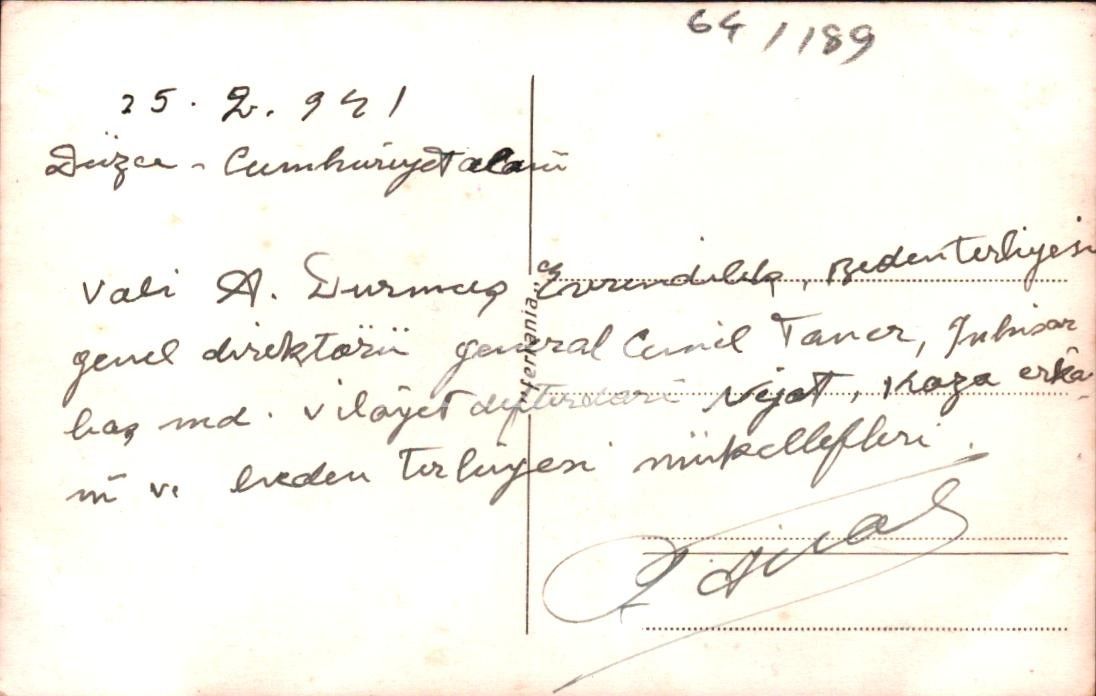 64/189
25. 2. 941
Düzce - Cumhuriyet alanı
Vali A. Durmuş Evrendilek, Beden terbiyesi
genel direktörü general Cemil Taner, İnhisar
baş md. vilâyet defterdarı Nejat, Kaza erkâ-
nı ve beden terbiyesi mükellefleri.
"Ferrania"